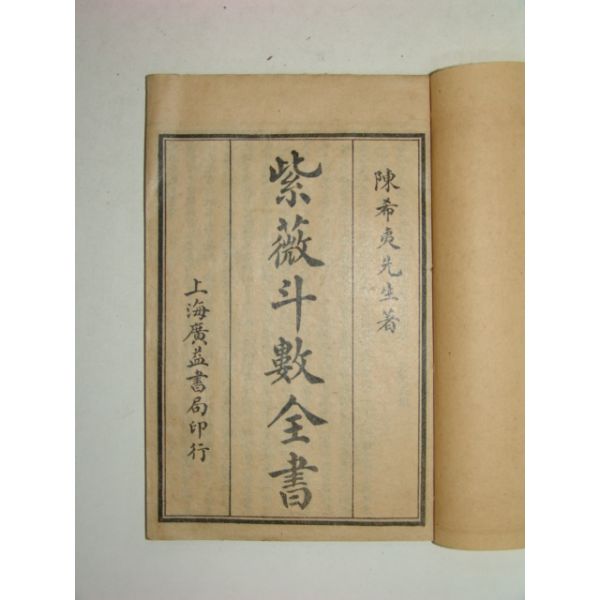 陳希夷先生著
紫薇斗數全書
上海廣益書局印行